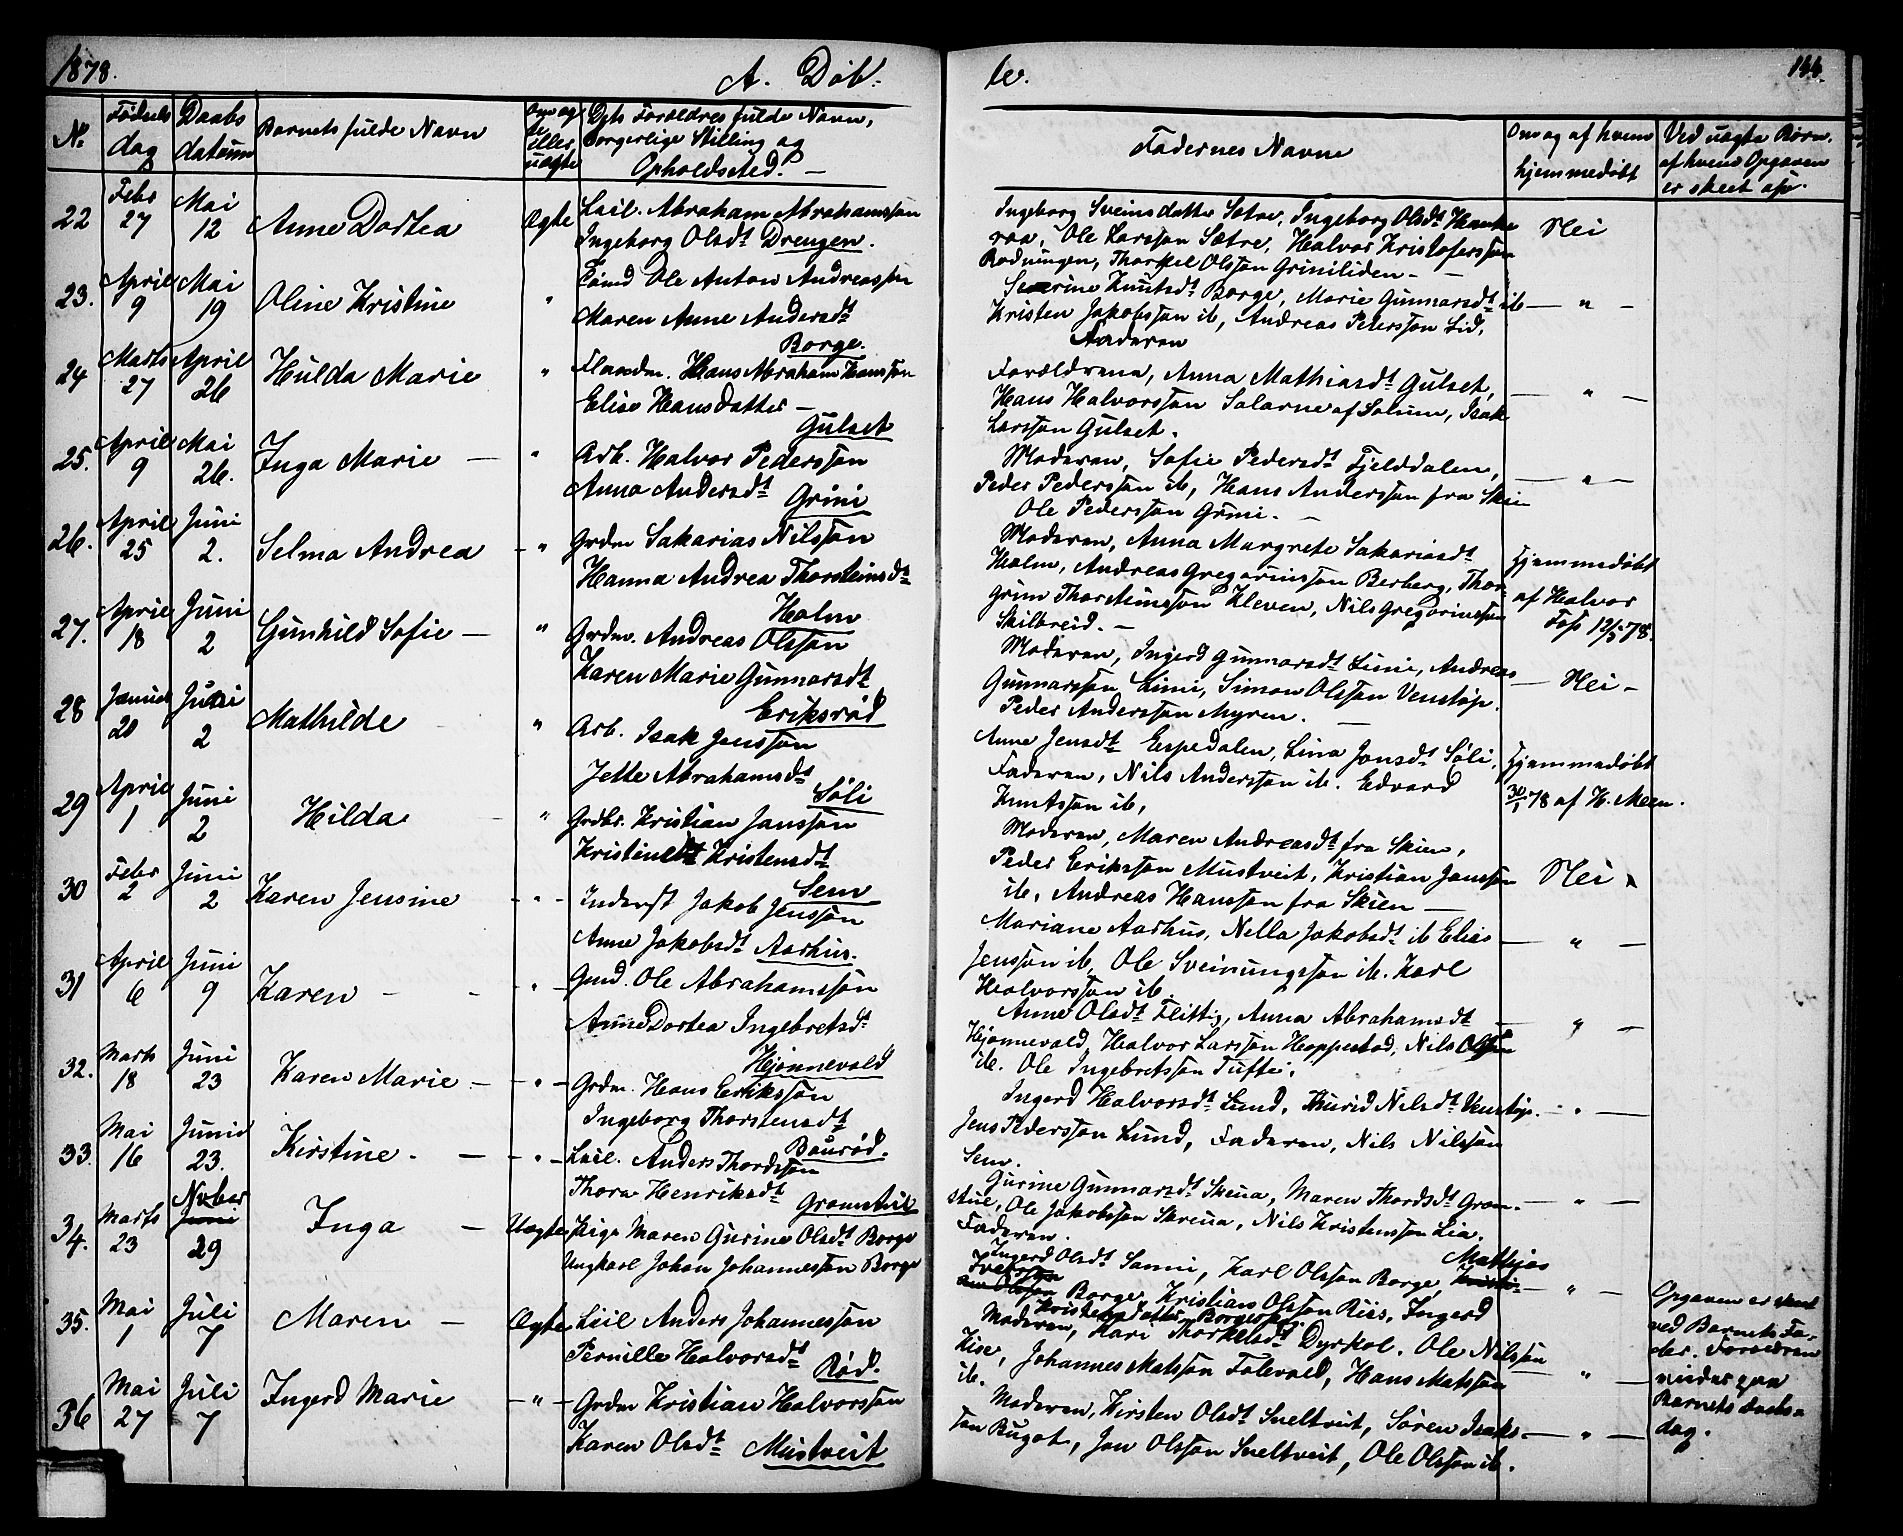 1878.
A. Døb-
te.
144.
No.
Fødsels dag
Daabs datum
Barnets fulde Navn
Om ægte eller uægte
Dets Forældres fulde Navn, borgerlige Stilling og Opholdssted. —
Fadernes Navne
Om og af hvem hjemmedøbt
Ved uægte Børn. af hvem Opgaven er skeet
22 Febr 27 Mai 12 Anne Dortea Ægte Leil. Abraham Abrahamsson
Ingeborg Olsdt Drengen.
Ingeborg Sveinsdatter Sætre, Ingeborg Olsdt
Ole Larsson Sætre, Halvor Kristofersson
Rødningen, Thorkel Olsson Griniliden —
Nei
23. April 9 Mai 19 Oline Kristine " Ole Anton Andreasson
Maren Anne Andersdt
Borge.
Severine Knutsdt Borge, Marie Gunnarsdt ib
Kristen Jakobsson ib, Andreas Petersson Lid,
Faderen
— " —
24 Marts 27 April 26 Hulda Marie " Hans Abraham Hansson
Elise Hansdatter —
Gulset
Forældrene, Anna Mathiasdt Gulset,
Hans Halvorsson Solarne af Solum, Isak
Larsson Gulset.
— " —
25. April 9 Mai 26. Inga Marie — " Arb. Halvor Pedersson
Anna Andersdt Grini
Moderen, Sofie Pedersdt Fjelddalen,
Peder Pedersson ib, Hans Andersson fra Skien
Ole Pedersson Grini. —
— " —
26. April 25 Juni 2. Selma Andrea — " Grdm Sakarias Nilsson
Hanna Andrea Thorsteinsdt
Holm
Moderen, Anna Margrete Sakariasdt
Holm, Andreas Gregoriusson Berberg, Thor-
grim Thorsteinsson Kleven, Nils Gregoriusson
Skilbreid. —
Hjemmedøbt
af Halvor
Foss 12/5 78.
27. April 18 Juni 2 Gunhild Sofie — " Grdm. Andreas Olsson
Karen Marie Gunnarsdt
Eriksrød
Moderen, Ingerd Gunnarsdt Limi, Andreas
Gunnarsson Limi, Simon Olsson Venstøp.
Peder Andersson Myren. —
— Nei —
28 Januar 20 Juni 2 Mathilde " Arb. Isak Jensson
Jette Abrahamsdt
Søli
Anne Jensdt Espedalen, Lina Jonsdt Søli,
Faderen, Nils Andersson ib. Edvard
Knutsson ib,
Hjemmedøbt
30/1 78 af H. Meen.
29 April 1 Juni 2 Hilda " Grdbr. Kristian Jansson
Kristensdt
Sem
Moderen, Maren Andreasdt fra Skien,
Peder Eriksson Mustveit, Kristian Jansson
ib, Andreas Hansson fra Skien —
Nei
30 Febr 2 Juni 2 Karen Jensine - " - Inderst Jakob Jensson
Anne Jakobsdt Aarhus.
Mariane Aarhus, Nella Jakobsdt ib Elias
Jensson ib, Ole Sveinungsson ib. Karl
Halvorsson ib.
— " —
31 April 6 Juni 9 Karen — - " - Gmd. Ole Abrahamsson
Anne Dortea Ingebretsdt
Hjønnevald
Anne Olsdt Flittig, Anna Abrahamsdt
Hjønnevald, Halvor Larsson Hoppestad, Nils Olsson
ib. Ole Ingebretsson Tufte.
— " —
32. Marts 18 Juni 23 Karen Marie — - " - Grdm. Hans Eriksson
Ingeborg Thorstensdt
Baurød.
Ingerd Halvorsdt Lund, Thurid Nilsdt Venstøp.
Jens Pedersson Lund, Faderen, Nils Nilsson
Sem.
— " —
33. Mai 16 Juni 23. Kirstine. — - " - Leil. Anders Thordsson
Thora Henriksdt
Gromstul
Gurine Gunnarsdt Skrua, Maren Thordsdt Grom-
stul, Ole Jakobsson Skrua, Nils Kristensson Lia.
Faderen.
— " —
34. Marts 23 Nvbr Juni 29 Inga — Uægte Pige Maren Gurine Olsdt Borge
Ungkarl Johan Johannesson Borge
Ingerd Olsdt Sanni, Karl Olsson Borge, Mathias
Iversson Borge, Kristian Olsson Riis, Ingerd
Kristensdatter
— " —
Opgaven er skeet
ved Barnets Fa-
der. Forældren
Barnets Daabs-
dag.
35. Mai 1 Juli 7 Maren — Ægte Leil Anders Johannesson
Pernille Halvorsdt
Rød.
Moderen, Kari Thorkelsdt Dyrkol. Ole Nilsson
Kise, Johannes Matsson Folevald, Hans Matsson
ib.
— " —
36 Mai 27 Juli 7 Ingerd Marie — " — Grdm Kristian Halvorsson
Karen Olsdt Mustveit
Moderen, Kirsten Olsdt Sneltveit, Søren Isaks-
son Rugot, Jon Olsson Sneltveit, Ole Olsson ib.
— " —